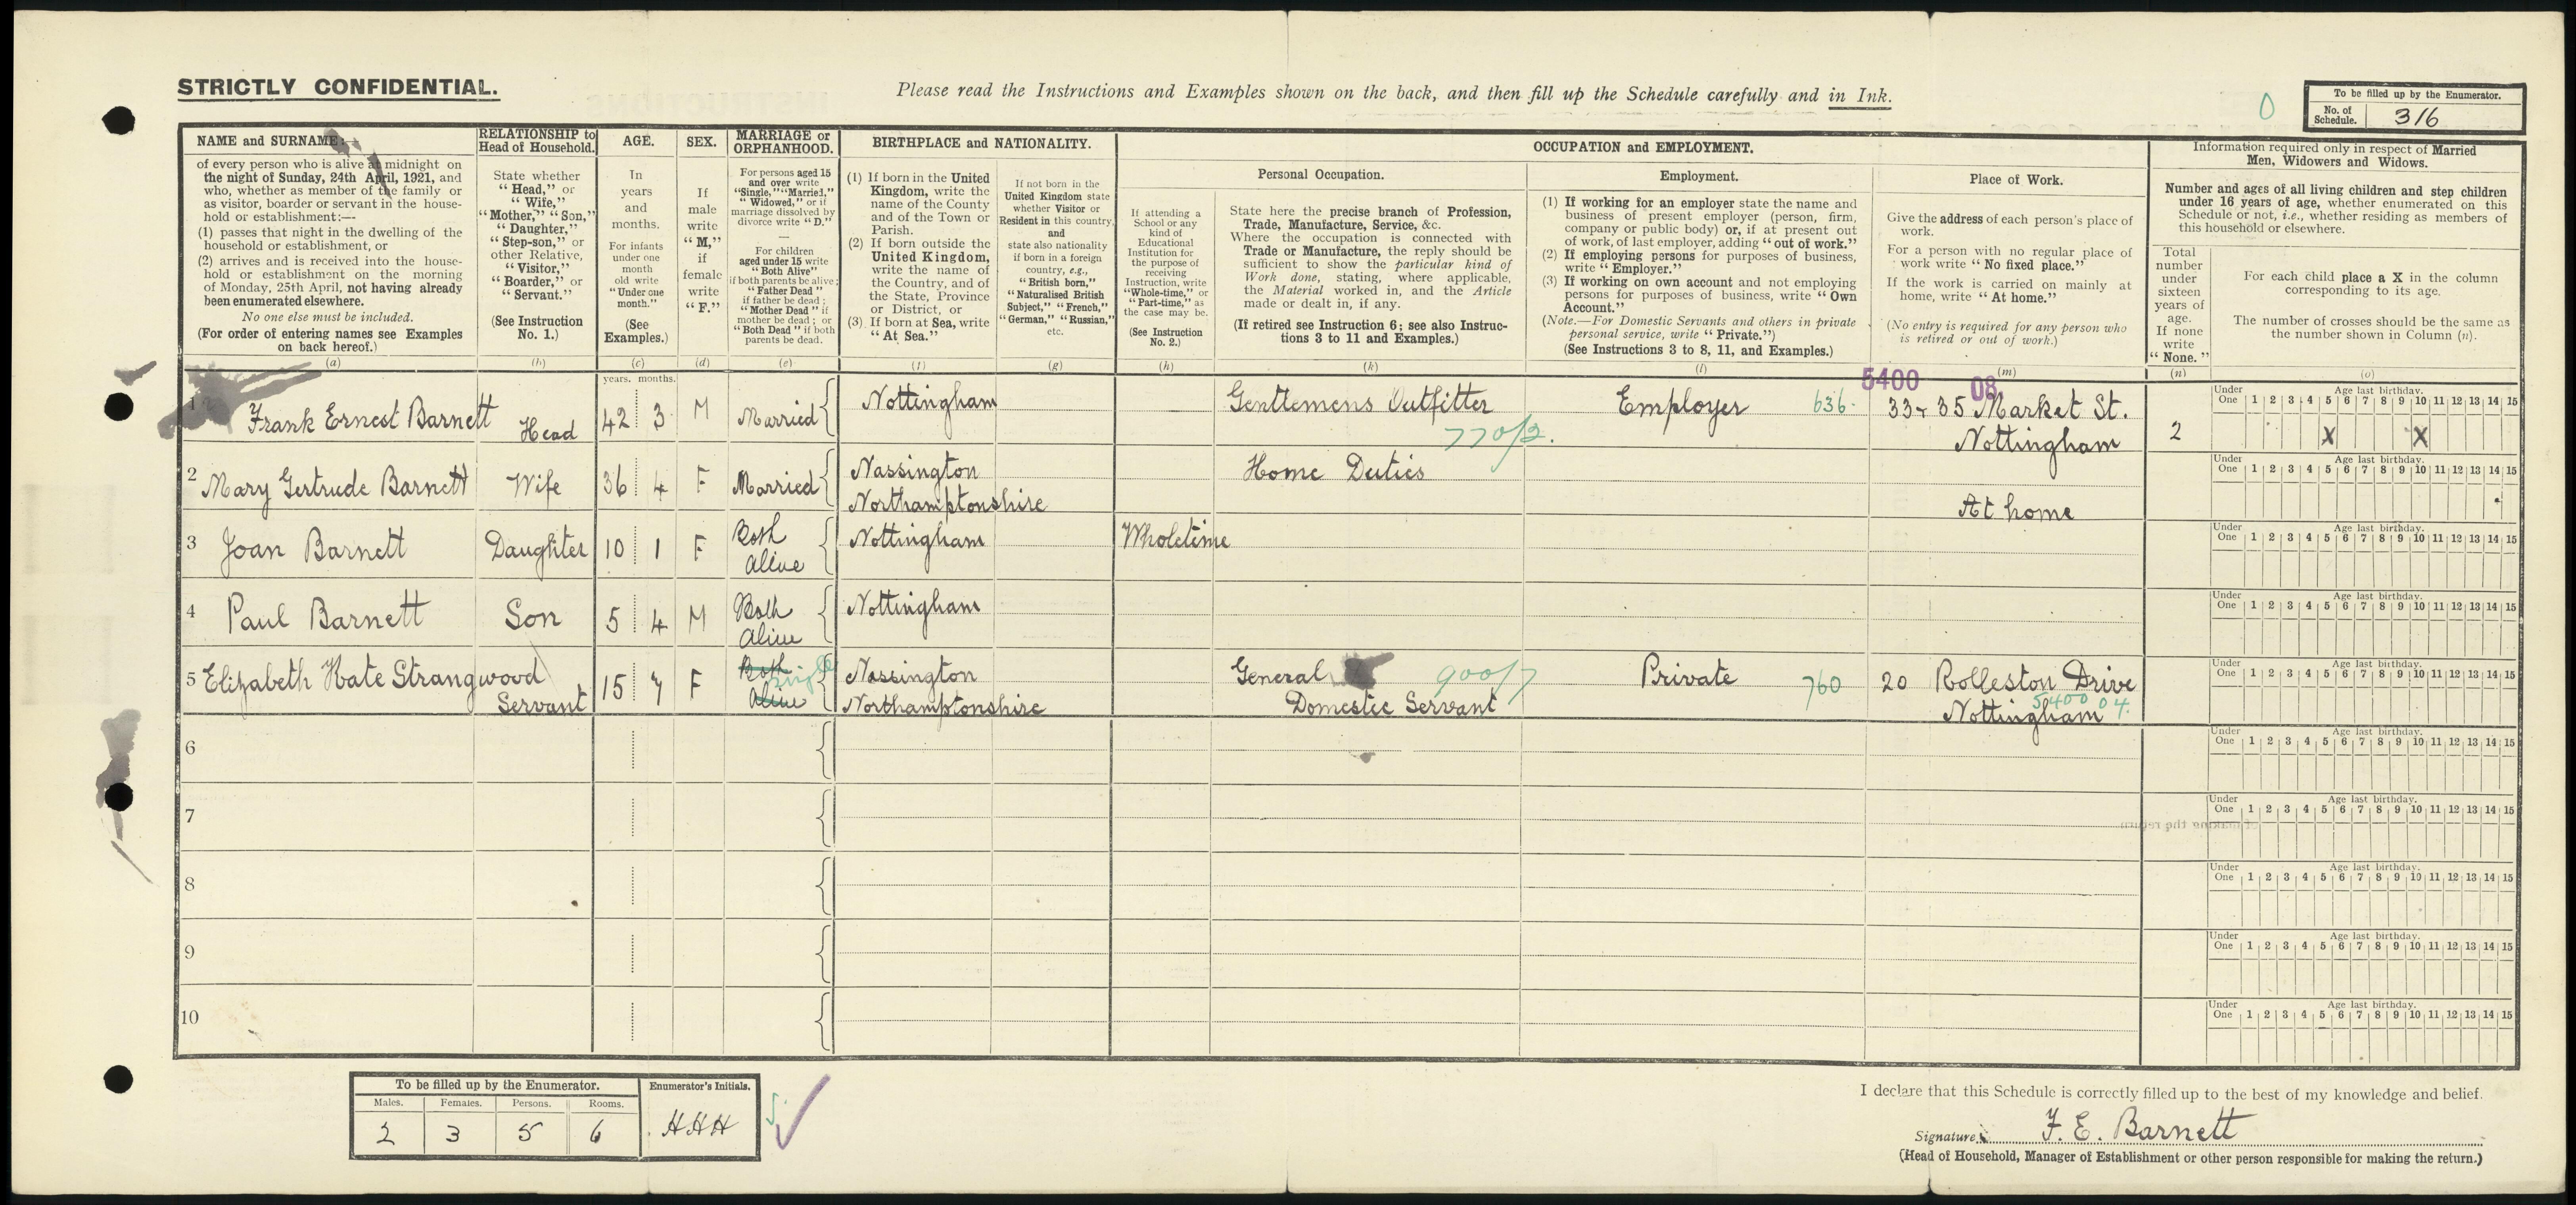 STRICTLY CONFIDENTIAL.
Please read the Instructions and Examples shown on the back, and then fill up the Schedule carefully and in Ink.
0
To be filled up by the Enumerator.
No. of Schedule. 316
NAME and SURNAME:—
of every person who is alive at midnight on
the night of Sunday, 24th April, 1921, and
who, whether as member of the family or
as visitor, boarder or servant in the house-
hold or establishment:—
(1) passes that night in the dwelling of the
household or establishment, or
(2) arrives and is received into the house-
hold or establishment on the morning
of Monday, 25th April, not having already
been enumerated elsewhere.
No one else must be included.
(For order of entering names see Examples
on back hereof.)
(a)
RELATIONSHIP to
Head of Household.
State whether
"Head," or
"Wife,"
"Mother," "Son,"
"Daughter,"
"Step-son," or
other Relative,
"Visitor,"
"Boarder," or
"Servant."
(See Instruction
No. 1.)
(b)
AGE.
In
years
and
months.
For infants
under one
month
old write
"Under one
month."
(See
Examples.)
(c)
SEX.
If
male
write
"M,"
if
female
write
"F."
(d)
MARRIAGE or
ORPHANHOOD.
For persons aged 15
and over write
"Single," "Married,"
"Widowed," or if
marriage dissolved by
divorce write "D."
—
For children
aged under 15 write
"Both Alive"
if both parents be alive;
"Father Dead"
if father be dead;
"Mother Dead" if
mother be dead; or
"Both Dead" if both
parents be dead.
(e)
BIRTHPLACE and NATIONALITY.
(1) If born in the United
Kingdom, write the
name of the County
and of the Town or
Parish.
(2) If born outside the
United Kingdom,
write the name of
the Country, and of
the State, Province
or District, or
(3) If born at Sea, write
"At Sea."
(f)
If not born in the
United Kingdom state
whether Visitor or
Resident in this country,
and
state also nationality
if born in a foreign
country, e.g.,
"British born,"
"Naturalised British
Subject," "French,"
"German," "Russian,"
etc.
(g)
OCCUPATION and EMPLOYMENT.
If attending a
School or any
kind of
Educational
Institution for
the purpose of
receiving
Instruction, write
"Whole-time," or
"Part-time," as
the case may be.
(See Instruction
No. 2.)
(h)
Personal Occupation.
State here the precise branch of Profession,
Trade, Manufacture, Service, &c.
Where the occupation is connected with
Trade or Manufacture, the reply should be
sufficient to show the particular kind of
Work done, stating, where applicable,
the Material worked in, and the Article
made or dealt in, if any.
(If retired see Instruction 6; see also Instruc-
tions 3 to 11 and Examples.)
(k)
Employment.
(1) If working for an employer state the name and
business of present employer (person, firm,
company or public body) or, if at present out
of work, of last employer, adding "out of work."
(2) If employing persons for purposes of business,
write "Employer."
(3) If working on own account and not employing
persons for purposes of business, write "Own
Account."
(Note.—For Domestic Servants and others in private
personal service, write "Private.")
(See Instructions 3 to 8, 11, and Examples.)
(l)
Place of Work.
Give the address of each person's place of
work.
For a person with no regular place of
work write "No fixed place."
If the work is carried on mainly at
home, write "At home."
(No entry is required for any person who
is retired or out of work.)
(m)
Information required only in respect of Married
Men, Widowers and Widows.
Number and ages of all living children and step children
under 16 years of age, whether enumerated on this
Schedule or not, i.e., whether residing as members of
this household or elsewhere.
Total
number
under
sixteen
years of
age.
If none
write
"None."
(n)
For each child place a X in the column
corresponding to its age.
The number of crosses should be the same as
the number shown in Column (n).
(o)
years. months.
5400 08
1 Frank Ernest Barnett Head 42 3 M Married Nottingham Gentlemens Outfitter 770/2. Employer 636. 33 & 35 Market St.
Nottingham 2 X X
Under One Age last birthday. 1 2 3 4 5 6 7 8 9 10 11 12 13 14 15
2 Mary Gertrude Barnett Wife 36 4 F Married Nassington
Northamptonshire Home Duties At home
Under One Age last birthday. 1 2 3 4 5 6 7 8 9 10 11 12 13 14 15
3 Joan Barnett Daughter 10 1 F Both
Alive Nottingham Wholetime
Under One Age last birthday. 1 2 3 4 5 6 7 8 9 10 11 12 13 14 15
4 Paul Barnett Son 5 4 M Both
Alive Nottingham
Under One Age last birthday. 1 2 3 4 5 6 7 8 9 10 11 12 13 14 15
5 Elizabeth Kate Strangwood Servant 15 7 F Both
Alive single Nassington
Northamptonshire General 900/7
Domestic Servant Private 760 20 Rolleston Drive
Nottingham 5400 04.
Under One Age last birthday. 1 2 3 4 5 6 7 8 9 10 11 12 13 14 15
6
Under One Age last birthday. 1 2 3 4 5 6 7 8 9 10 11 12 13 14 15
7
Under One Age last birthday. 1 2 3 4 5 6 7 8 9 10 11 12 13 14 15
8
Under One Age last birthday. 1 2 3 4 5 6 7 8 9 10 11 12 13 14 15
9
Under One Age last birthday. 1 2 3 4 5 6 7 8 9 10 11 12 13 14 15
10
Under One Age last birthday. 1 2 3 4 5 6 7 8 9 10 11 12 13 14 15
To be filled up by the Enumerator.
Males. Females. Persons. Rooms.
2 3 5 6
Enumerator's Initials.
HHH
I declare that this Schedule is correctly filled up to the best of my knowledge and belief.
Signature F. E. Barnett
(Head of Household, Manager of Establishment or other person responsible for making the return.)